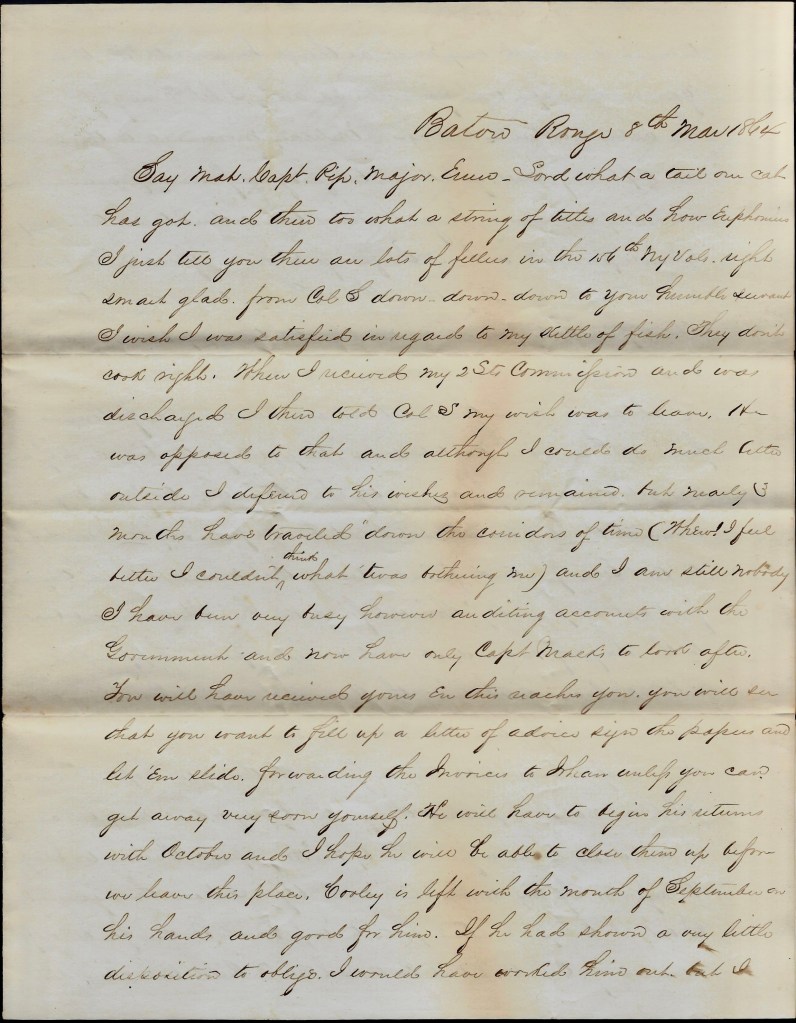 Baton Rouge 8th Mar 1864
Say Mat. Capt. Pip. Major. Lord what a tail our cat
has got. and then too what a string of titles and how Euphonius
I just tell you there are lots of fellers in the 156th NyVols. right
smart glad. from Col S down - down - down to your humble servant
I wish I was satisfied in regard to my kettle of fish. They don't
cook right. When I received my 2 Lts Commission and was
discharged I then told Col S my wish was to leave. He
was opposed to that and although I could do much better
outside I defered to his wishes and remained. but nearly 3
months have traveled "down the corridors of time (Whew! I feel
better I couldn't think what 'twas bothering me) and I am still nobody
I have been very busy however auditing accounts with the
Government and now have only Capt Mack's to look after.
You will have received yours ere this reaches you. you will see
that you want to fill up a letter of advice sign the papers and
let 'em slide. forwarding the Invoices to unless you can
get away very soon yourself. He will have to begin his returns
with October and I hope he will be able to close them up before
we leave this place. Cooley is left with the month of September on
his hands and good for him. If he had shown a very little
disposition to oblige. I would have worked him out. but I